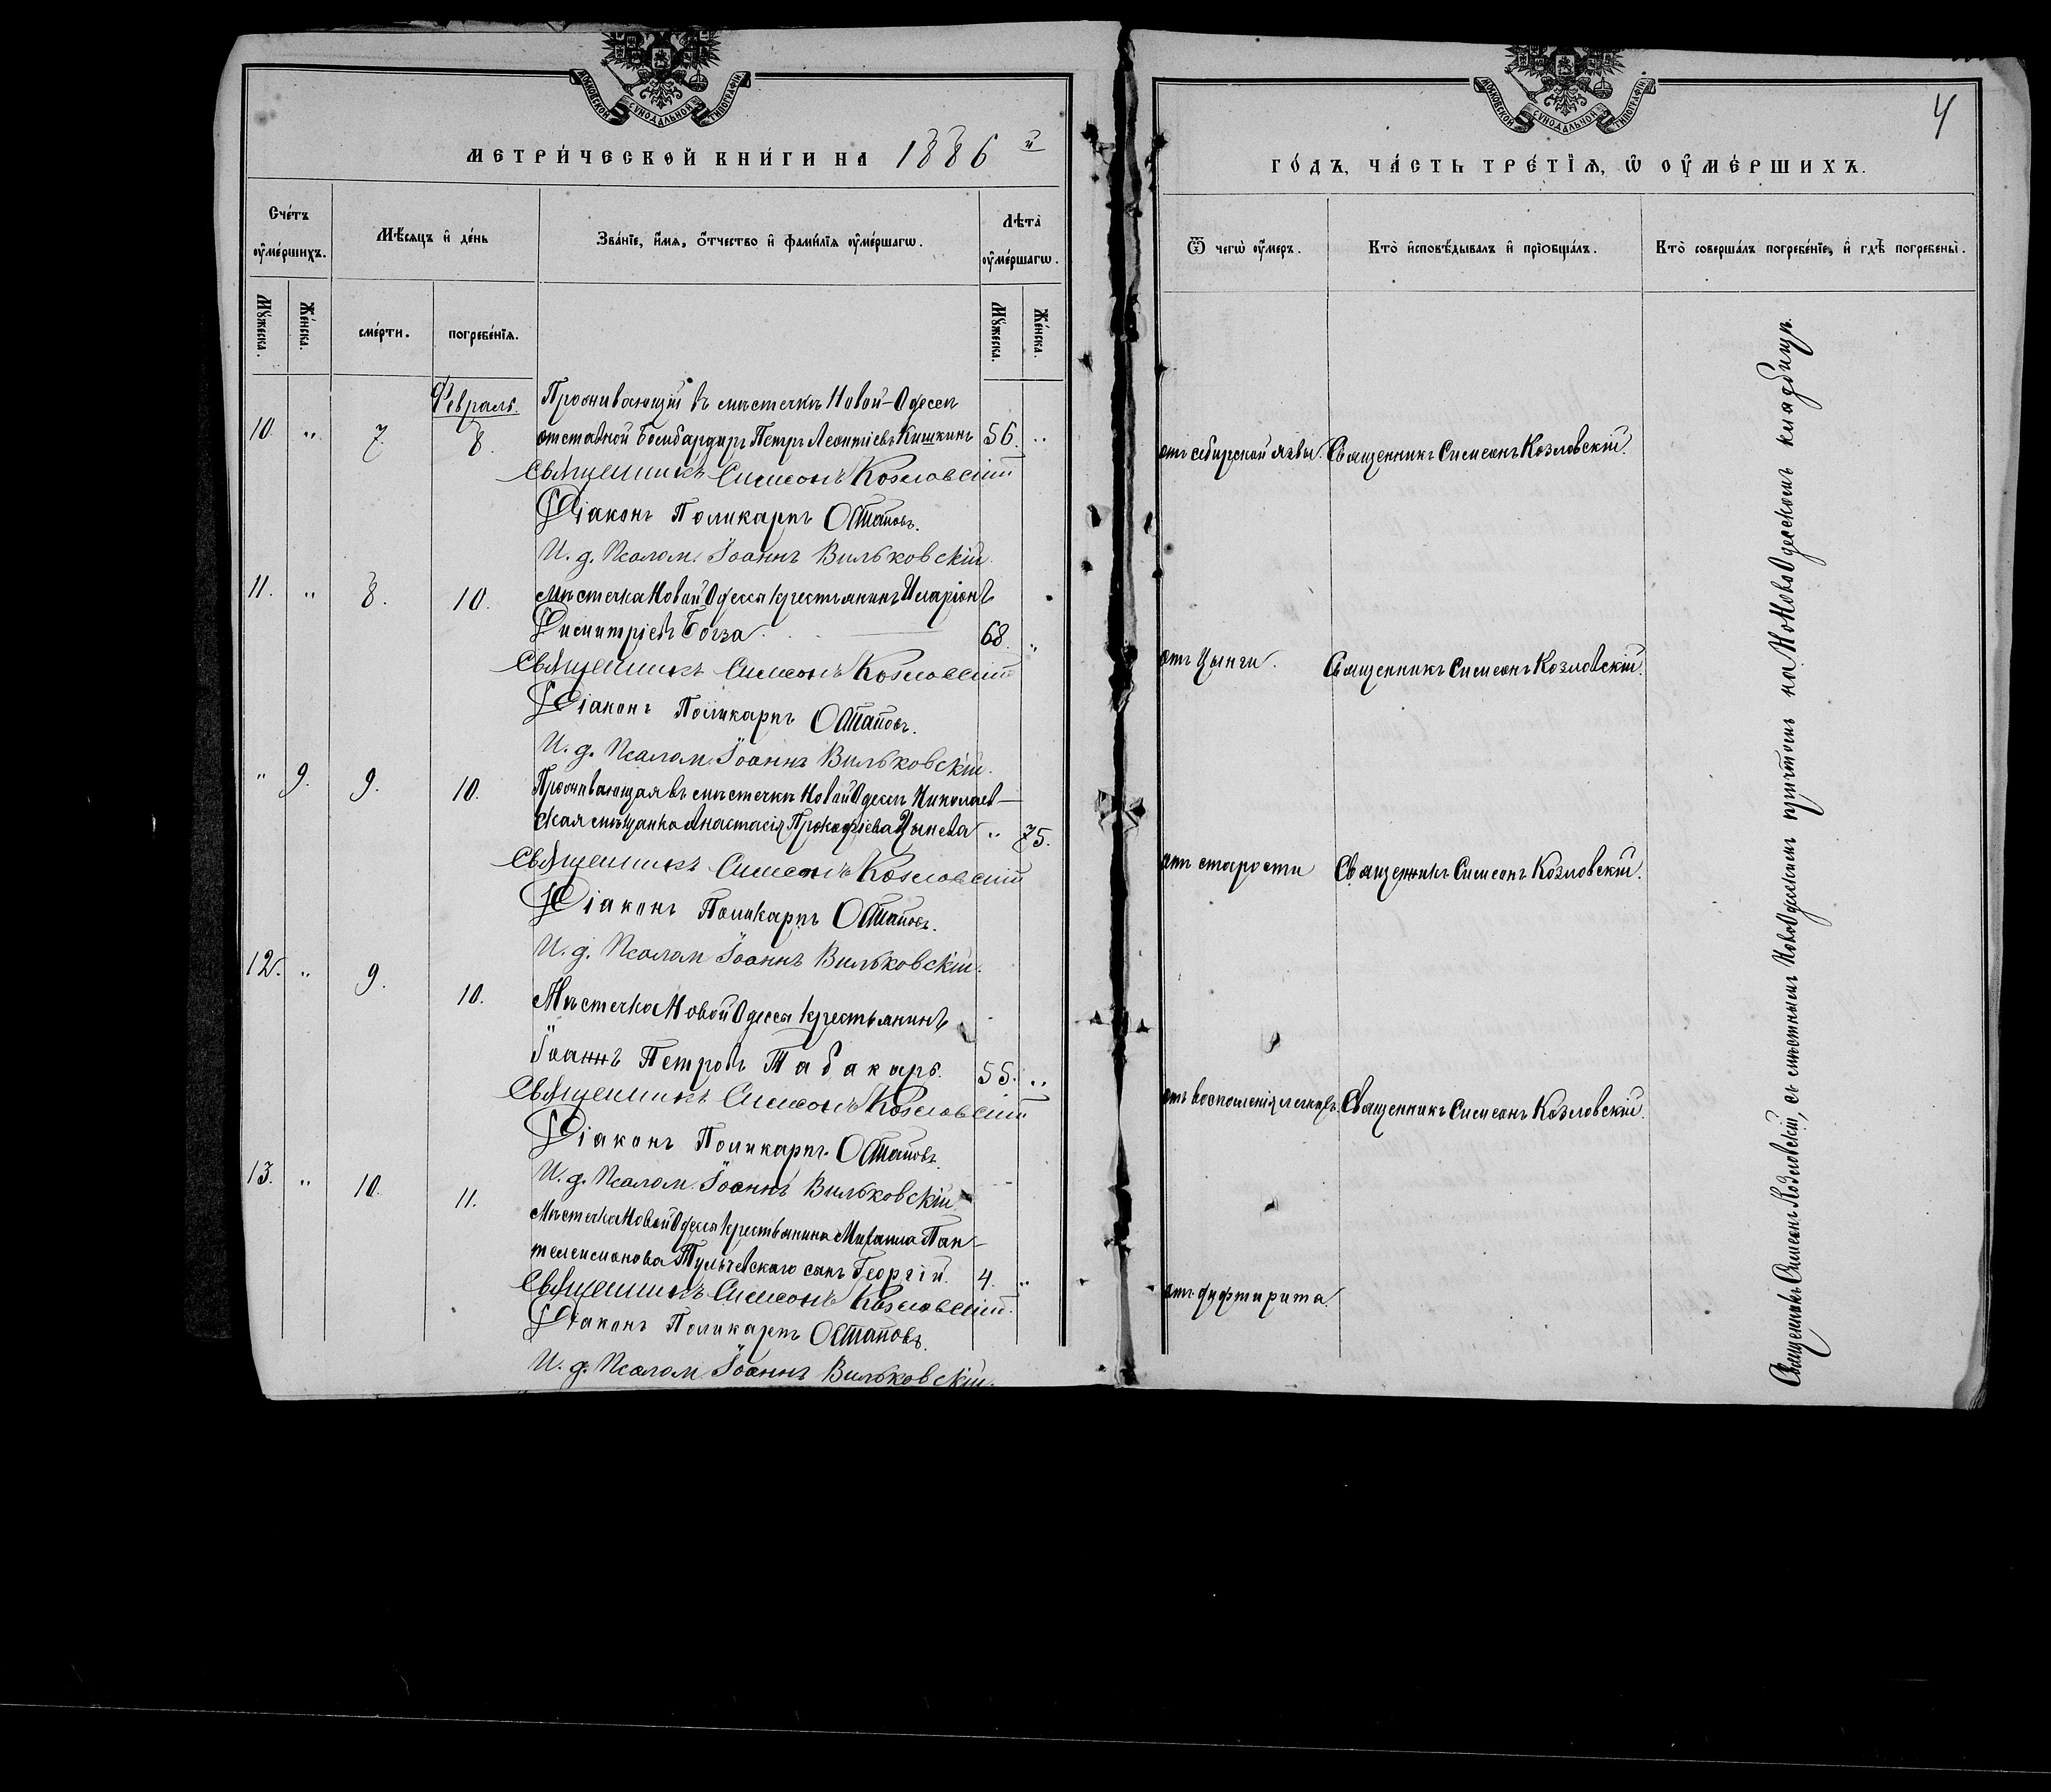 МОСКОВСКОЙ СѴНОДАЛЬНОЙ ТИПОГРАФІИ
МЕТРИ́ЧЕСКОЙ КНИ́ГИ НА 1886 й
Сче́тъ оу҆ме́ршихъ.
Мѣ́сяцъ и҆ де́нь
Зва́нїе, и҆́мя, ѻ҆́тчество и҆ фами́лїя оу҆ме́ршагѡ.
Лѣта̀ оу҆ме́ршагѡ.
Мꙋ́жеска.
Же́нска.
сме́рти.
погребе́нїя.
Мꙋ́жеска.
Же́нска.
Февраль.
Проживающій въ мѣстечкѣ Новой-Одессѣ
10. " 7. 8. отставной Бомбардиръ Петръ Леонтіевъ Кишкинъ 56. "
Священникъ Симеонъ Козловскій
Діаконъ Поликарпъ Остаповъ.
И. д. Псалом. Іоаннъ Вильковскій.
11. " 8. 10. Мѣстечка Новой Одессы крестьянинъ Иларіонъ
Димитріевъ Богза. 68. "
Священникъ Симеонъ Козловскій
Діаконъ Поликарпъ Остаповъ.
И. д. Псалом. Іоаннъ Вильковскій.
" 9. 9. 10. Проживающая въ мѣстечкѣ Новой Одессѣ Николаев-
ская мѣщанка Анастасія Прокофіева Цынева " 75.
Священникъ Симеонъ Козловскій
Діаконъ Поликарпъ Остаповъ.
И. д. Псалом Іоаннъ Вильковскій.
12. " 9. 10. Мѣстечка Новой Одессы крестьянинъ
Іоаннъ Петровъ Табакарь. 55. "
Священникъ Симеонъ Козловскій
Діаконъ Поликарпъ Остаповъ.
И. д. Псалом. Іоаннъ Вильковскій.
13. " 10. 11. Мѣстечка Новой Одессы крестьянина Михаила Пан-
телеимонова Тульчевскаго сынъ Георгій. 4. "
Священникъ Симеонъ Козловскій.
Діаконъ Поликарпъ Остаповъ.
И. д. Псалом. Іоаннъ Вильковскій.
4
МОСКОВСКОЙ СѴНОДАЛЬНОЙ ТИПОГРАФІИ
ГО́ДЪ, ЧА́СТЬ ТРЕ́ТЇѦ, Ѡ҆ ОУ҆МЕ́РШИХЪ.
Ѿ чегѡ̀ оу҆́меръ.
Кто̀ и҆сповѣ́дывалъ и҆ прїѻбща́лъ.
Кто̀ соверша́лъ погребе́нїе, и҆ гдѣ̀ погребены̀.
отъ сибирской язвы. Священникъ Симеонъ Козловскій.
отъ цынги. Священникъ Симеонъ Козловскій.
отъ старости Священникъ Симеонъ Козловскій.
отъ воспаленія легкихъ. Священникъ Симеонъ Козловскій.
отъ дифтирита.
Священникъ Симеонъ Козловскій, съ мѣстнымъ НовоОдесскимъ причтомъ на НовоОдесскомъ кладбищѣ.